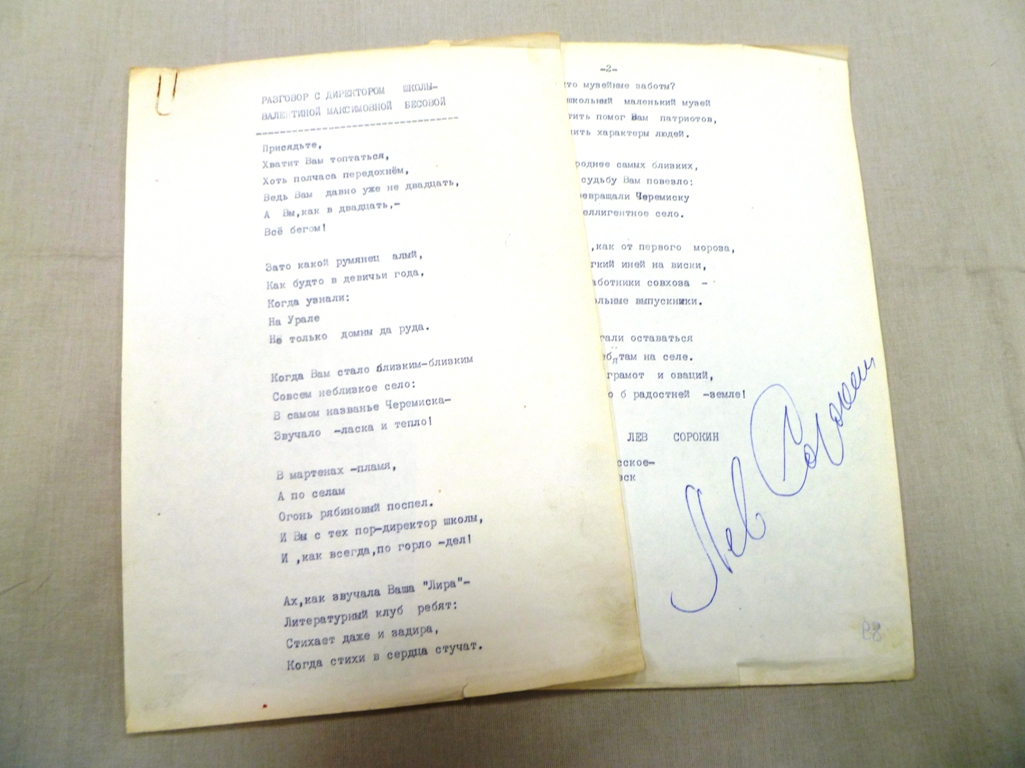 РАЗГОВОР С ДИРЕКТОРОМ ШКОЛЫ-
ВАЛЕНТИНОЙ МАКСИМОВНОЙ БЕСОВОЙ
Присядьте,
Хватит Вам топтаться,
Хоть полчаса передохнём,
Ведь Вам давно уже не двадцать,
А Вы,как в двадцать,-
Всё бегом!
Зато какой румянец алый,
Как будто в девичьи года,
Когда узнали:
На Урале
Не только домны да руда.
Когда Вам стало близким-близким
Совсем неблизкое село:
В самом названье Черемиска-
Звучало -ласка и тепло!
В мартенах -пламя,
А по селам
Огонь рябиновый поспел.
И Вы с тех пор-директор школы,
И ,как всегда,по горло -дел!
Ах,как звучала Ваша "Лира"-
Литературный клуб ребят:
Стихает даже и задира,
Когда стихи в сердца стучат.
-2-
то музейные заботы?
школьный маленький музей
тить помог Вам патриотов,
нить характеры людей.
роднее самых близких,
судьбу Вам повезло:
евращали Черемиску
еллигентное село.
,как от первого мороза,
гкий иней на виски,
аботники совхоза -
ольные выпускники.
гали оставаться
ебятам на селе.
грамот и оваций,
о б радостней -земле!
ЛЕВ СОРОКИН
сское-
вск
Лев Сорокин
88